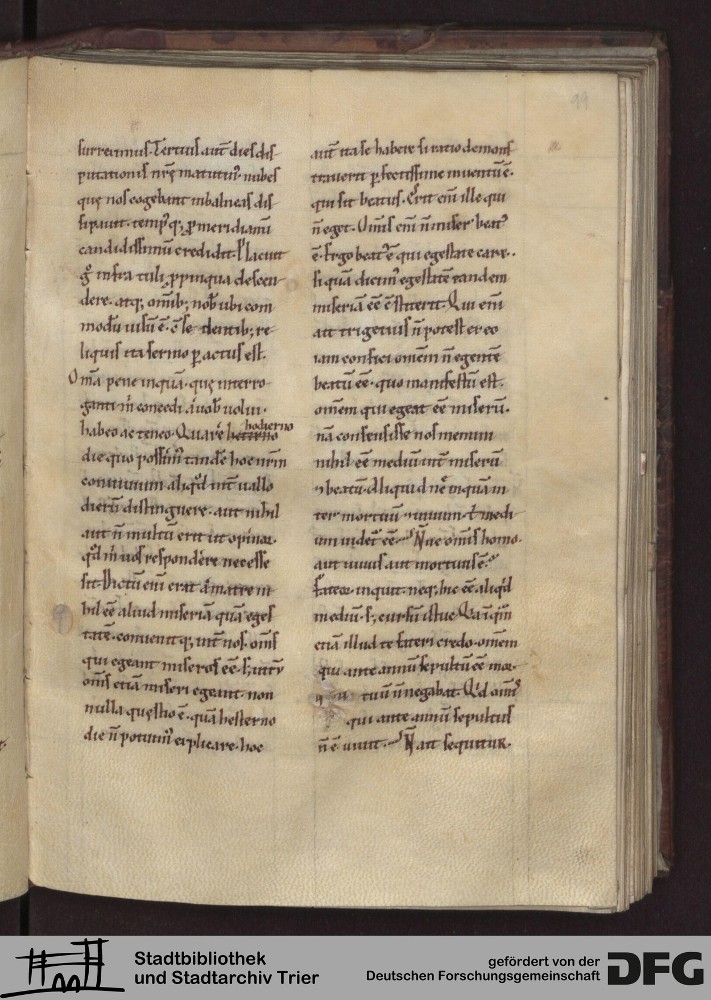 19
surreximus. Tertius aut̄ dies dis-
putationis nrę matutin᷒ nubes
quę nos cogebant in balneas dis-
sipauit. tempusq; pmeridianū
candidissimū reddidit. Placuit
g̊ in pratuli ppinqua descen-
dere. atq; omib; nob ubi com-
modū uisū ē. c̄sedentib; re-
liquus ita sermo pactus est.
Oma pene inquā. quę interro-
ganti m̄ concedi a uob uolui.
habeo ac teneo. Quare hodierno
die quo possim᷒ tandē hoc nrm
conuiuium aliqd int̄ uallo
dierū distinguere. aut nihil
aut n̄ multū erit ut opinor.
qd m̄ uos respondere necesse
sit. Dictū eni erat a matre ni-
hil eē aliud miseriā quā eges-
tatē. conuenitq; int̄ nos. oms
qui egeant miseros eē. s; utrū
oms etiā miseri egeant. non
nulla questio ē. quā hesterno
die n̄ potuim᷒ explicare. hoc
aut̄ ita se habere si ratio demons-
trauerit pfectissime inuentū ē.
qui sit beatus. Erit eni ille qui
n̄ eget. Omis eni n̄ miser beat᷒
ē. Ergo beat᷒ ē qui egestate caret.
si quā dicim᷒ egestatē eandem
miseriā eē c̄stiterit. Qui eni
ait trigetius n̄ potest ex eo
iam confici omem n̄ egentē
beatū eē. quo manifestū est.
omem qui egeat eē miserū.
nā consensisse nos memini
nihil eē mediū int̄ miserū
⁊ beatū. Aliquid ne inquā in-
ter mortuū ⁊ uiuum t̄ medi-
um uidet̄ eē. Nne omis homo.
aut uiuus aut mortuus ē.
Fateor inquit. neq; hic eē aliqd
mediū. s; cursū istuc. Quia qm̄
etiā illud te fateri credo. omem
qui ante annū sepultū eē mor-
tuū n̄ negabat. Qd omis
qui ante annū sepultus
n̄ ē uiuit. N̄ ait sequitur.
Stadtbibliothek
und Stadtarchiv Trier
gefördert von der
Deutschen Forschungsgemeinschaft
DFG